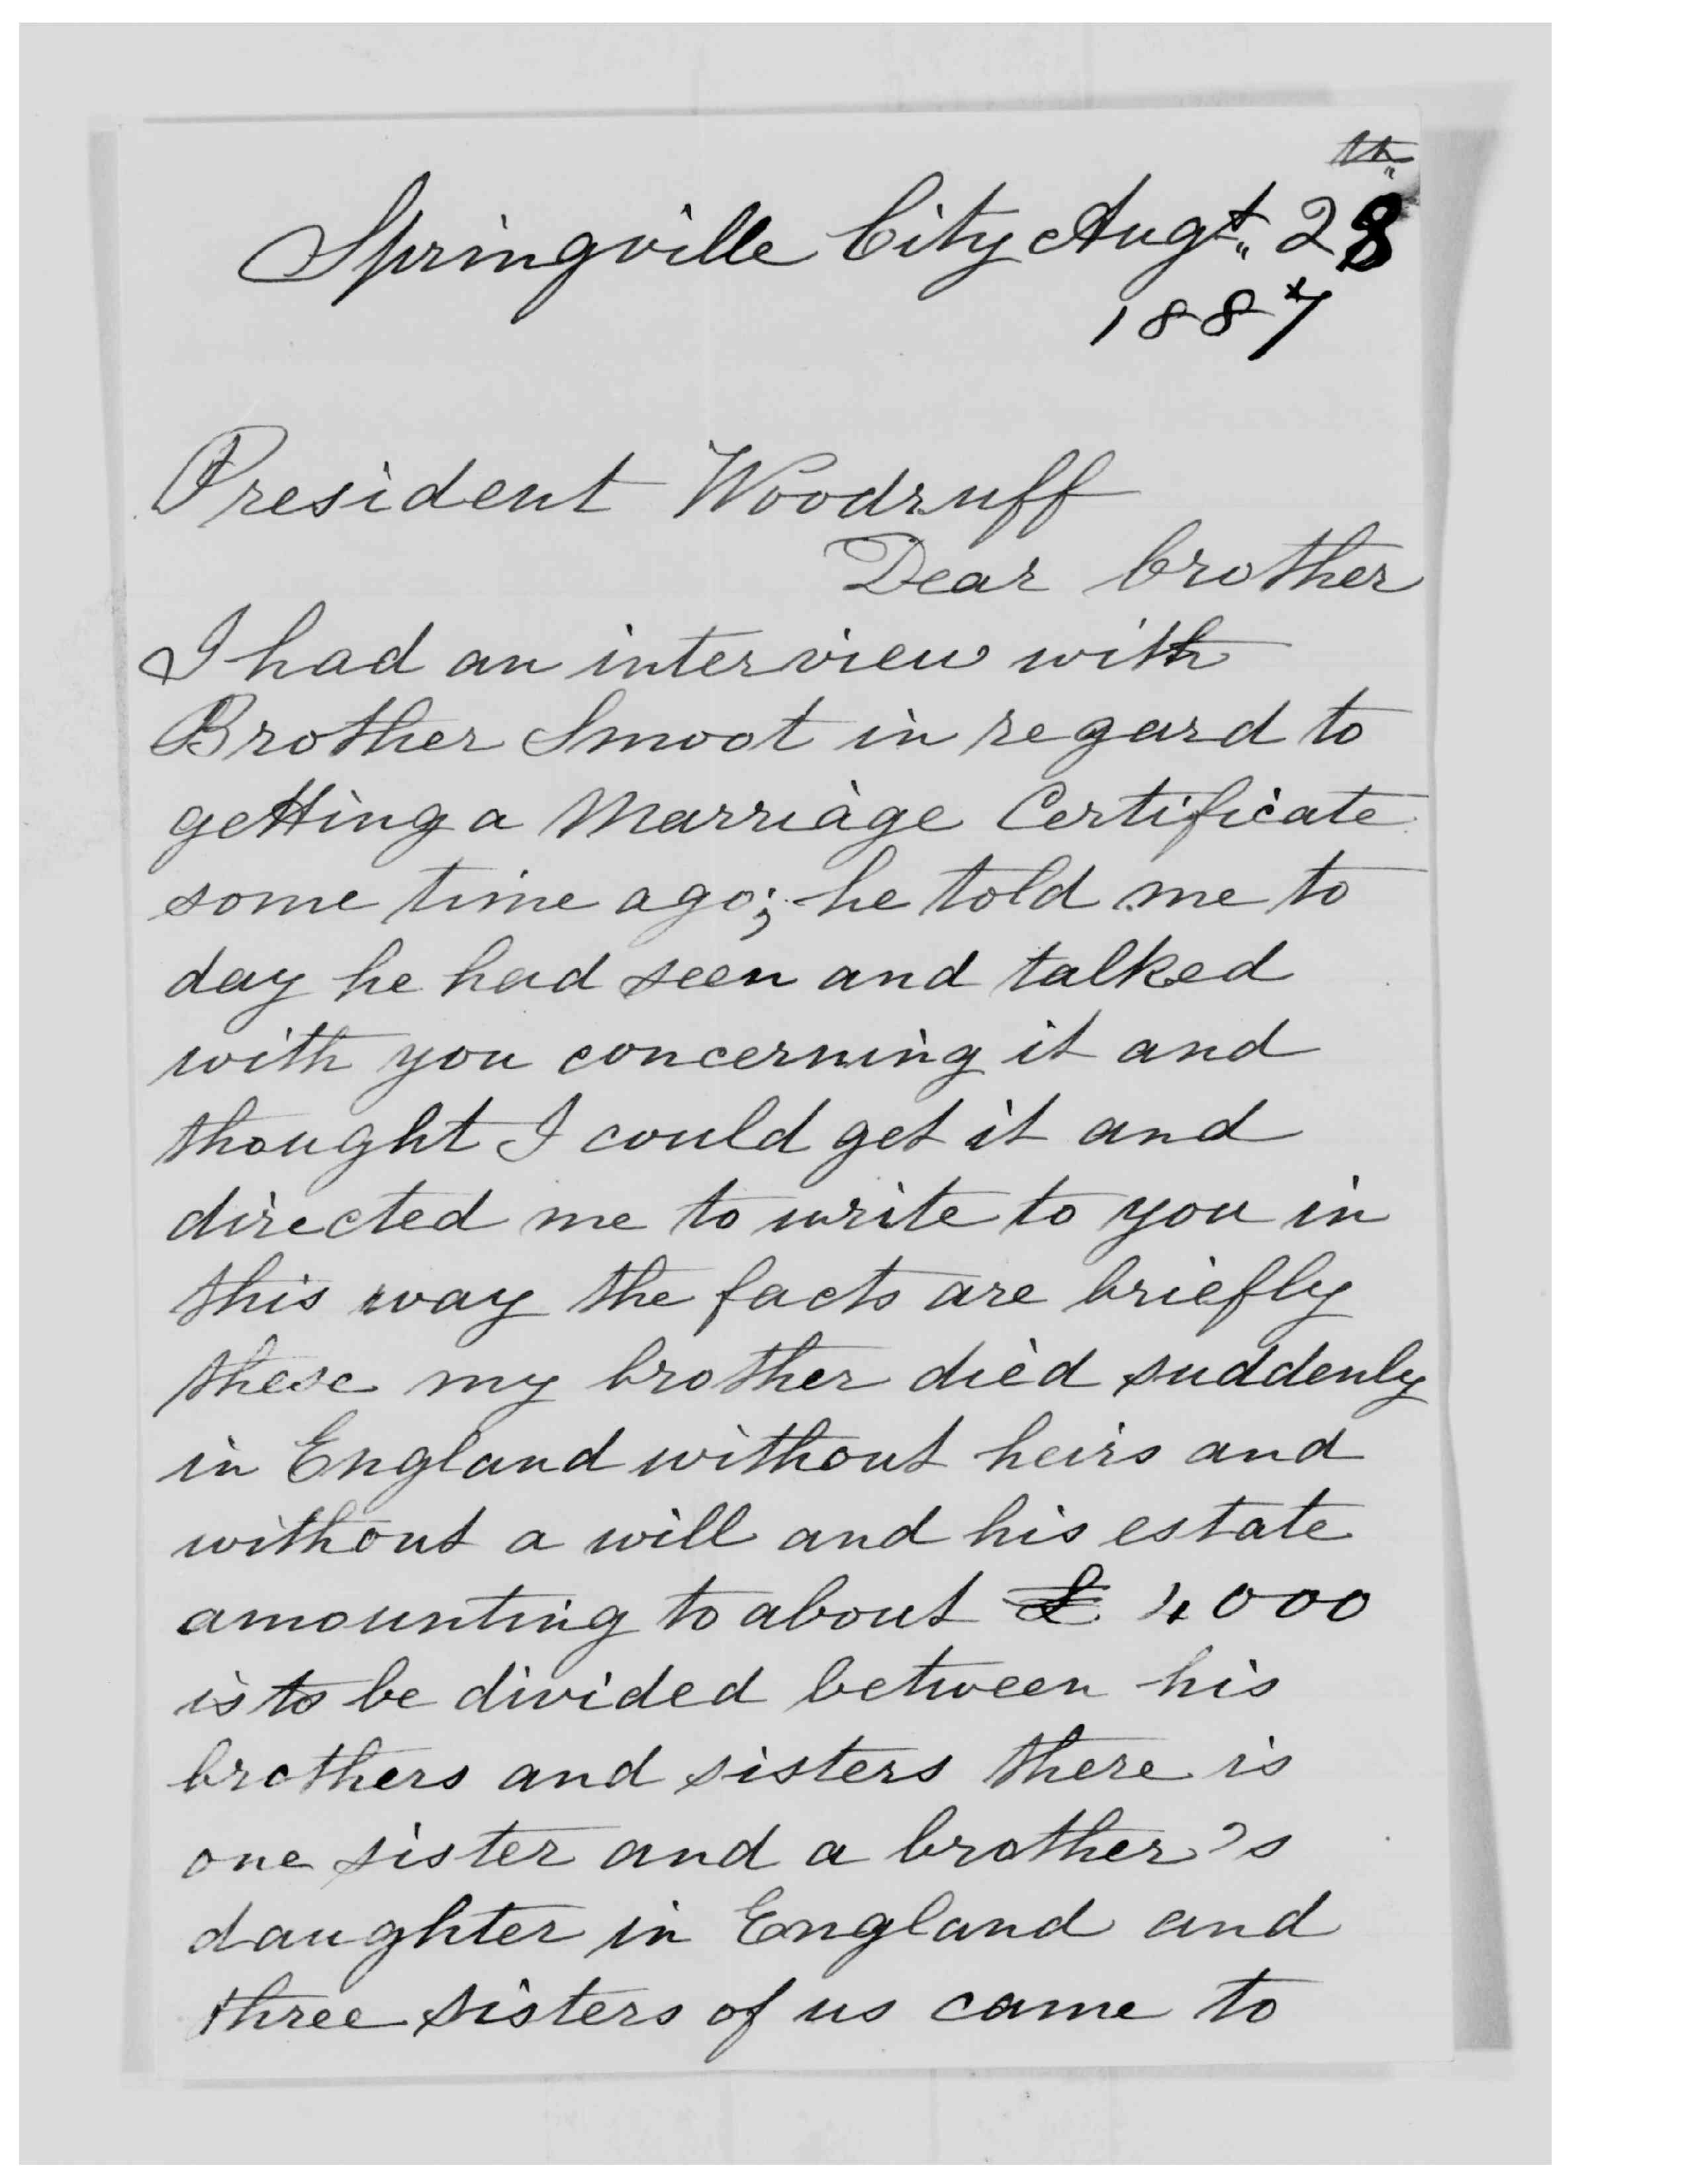 Springville City Augt. 28th
1887
President Woodruff
Dear brother
I had an interview with
Brother Smoot in regard to
getting a Marriage Certificate
some time ago; he told me to
day he had seen and talked
with you concerning it and
thought I could get it and
directed me to write to you in
this way the facts are briefly
these my brother died suddenly
in England without heirs and
without a will and his estate
amounting to about £ 4000
is to be divided between his
brothers and sisters there is
one sister and a brother's
daughter in England and
three sisters of us came to